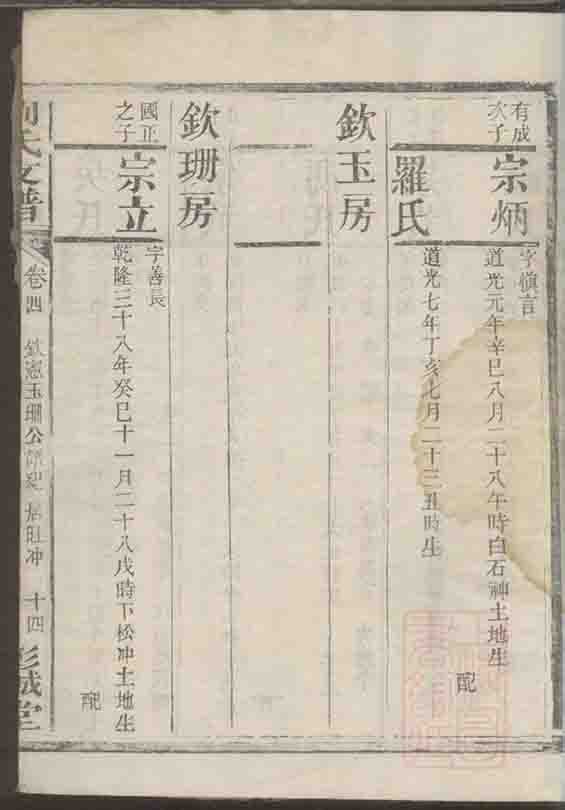 有成
次子
宗炳
字慎言
道光元年辛巳八月二十八午時白石神土地生
配
羅氏
道光七年丁亥七月二十三丑時生
欽玉房
欽珊房
國正
之子
宗立
字善長
乾隆三十八年癸巳十一月二十八戌時下松冲土地生
配
劉氏支譜
卷四
欽憲玉珊公
居旺冲
十四
彭城堂